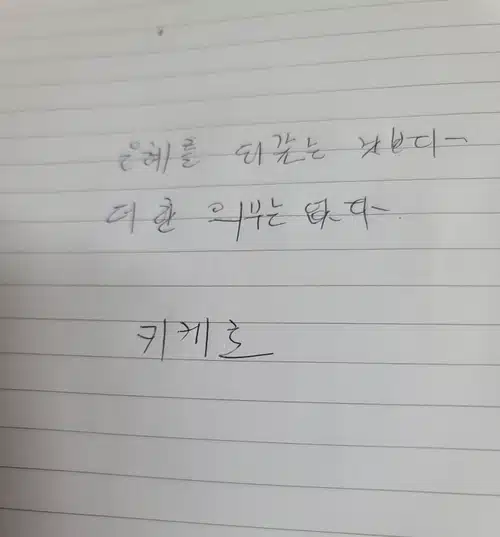 은혜를 되갚는 것보다
더 한 의무는 없다.
키케로